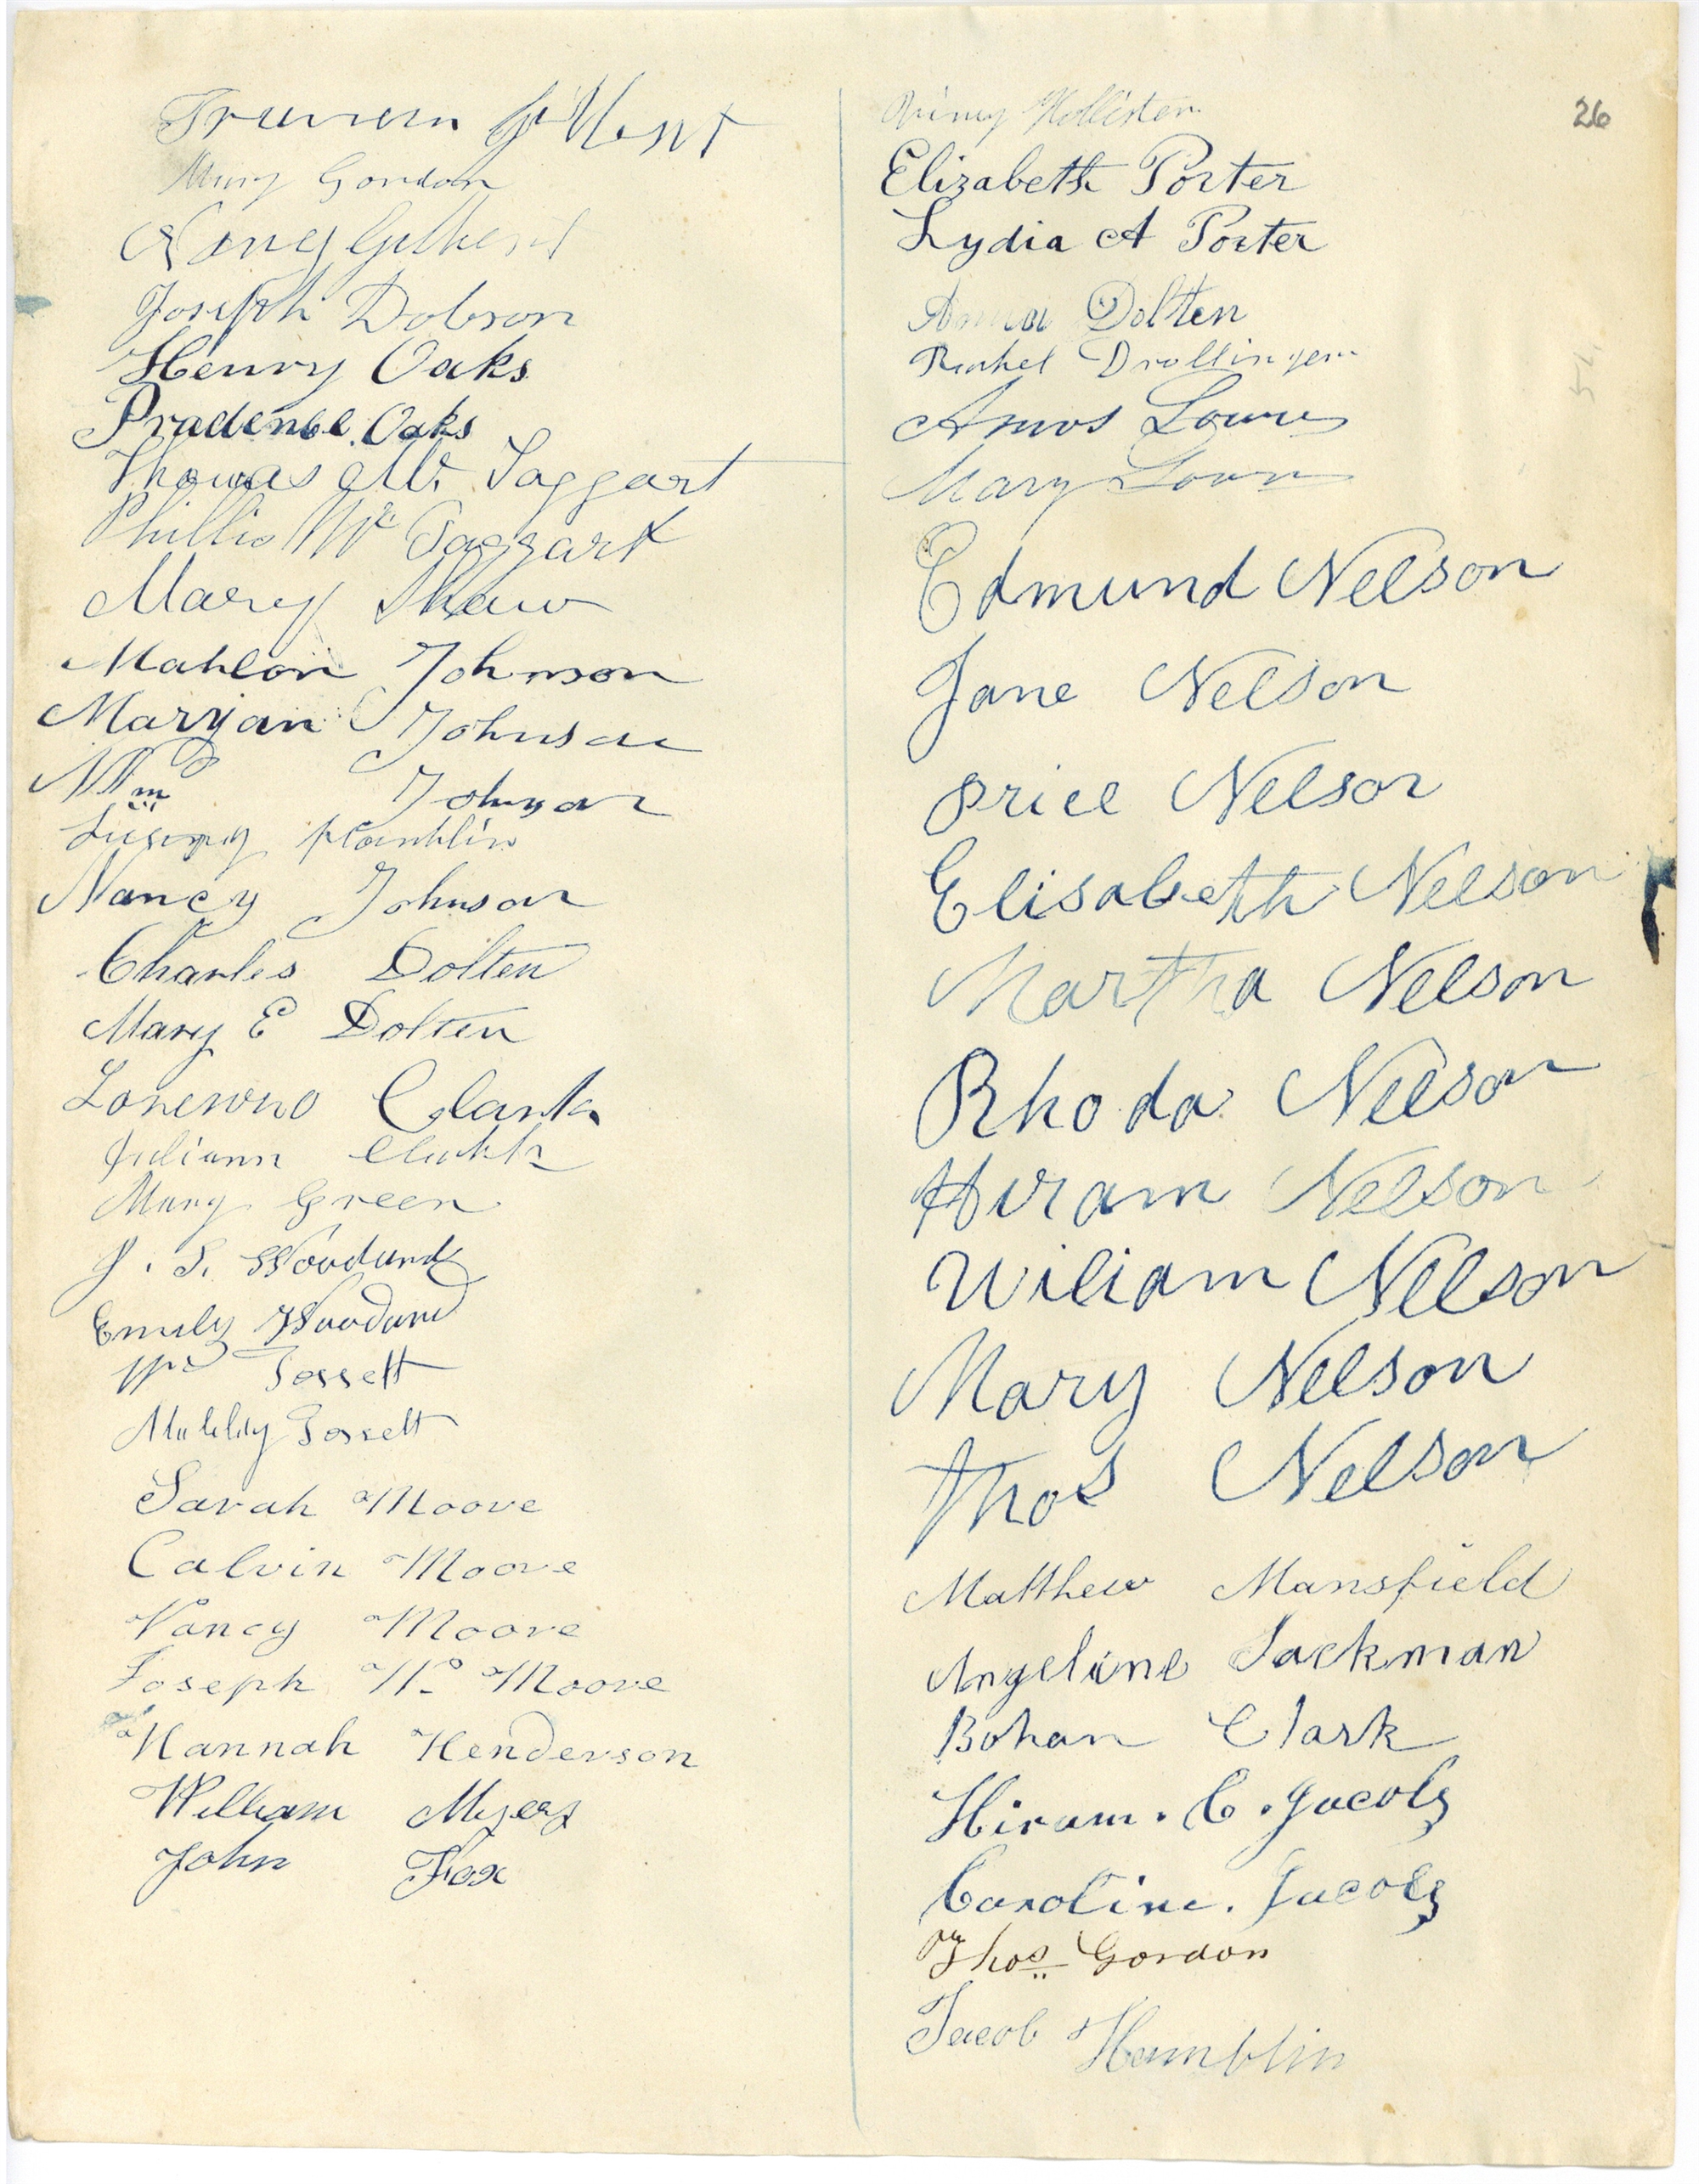 Truman Gilbert
Mary Gordon
Nancy Gilbert
Joseph Dobson
Henry Oaks
Prudence Oaks
Thomas Mc Taggart
Phillis Mc Taggart
Mary Shaw
Mahlon Johnson
Maryan Johnson
Wm Johnson
Franklin
Nancy Johnson
Charles Dolten
Mary E Dolten
Clark
Juliann
Mary Green
J. S. Woodard
Emily Woodard
Wm Gossett
Gossett
Sarah Moore
Calvin Moore
Nancy Moore
Joseph W. Moore
Hannah Henderson
William Myers
John Fox
26
Hollister
Elizabeth Porter
Lydia A Porter
Dolten
Rachel Drollinger
Amos Lower
Mary Lower
Edmund Nelson
Jane Nelson
price Nelson
Elisabeth Nelson
Martha Nelson
Rhoda Nelson
Hiram Nelson
Wiliam Nelson
Mary Nelson
Thos Nelson
Matthew Mansfield
Angeline Jackman
Bohan Clark
Hiram. C. Jacobs
Caroline. Jacobs
Thos Gordon
Jacob Hamblin